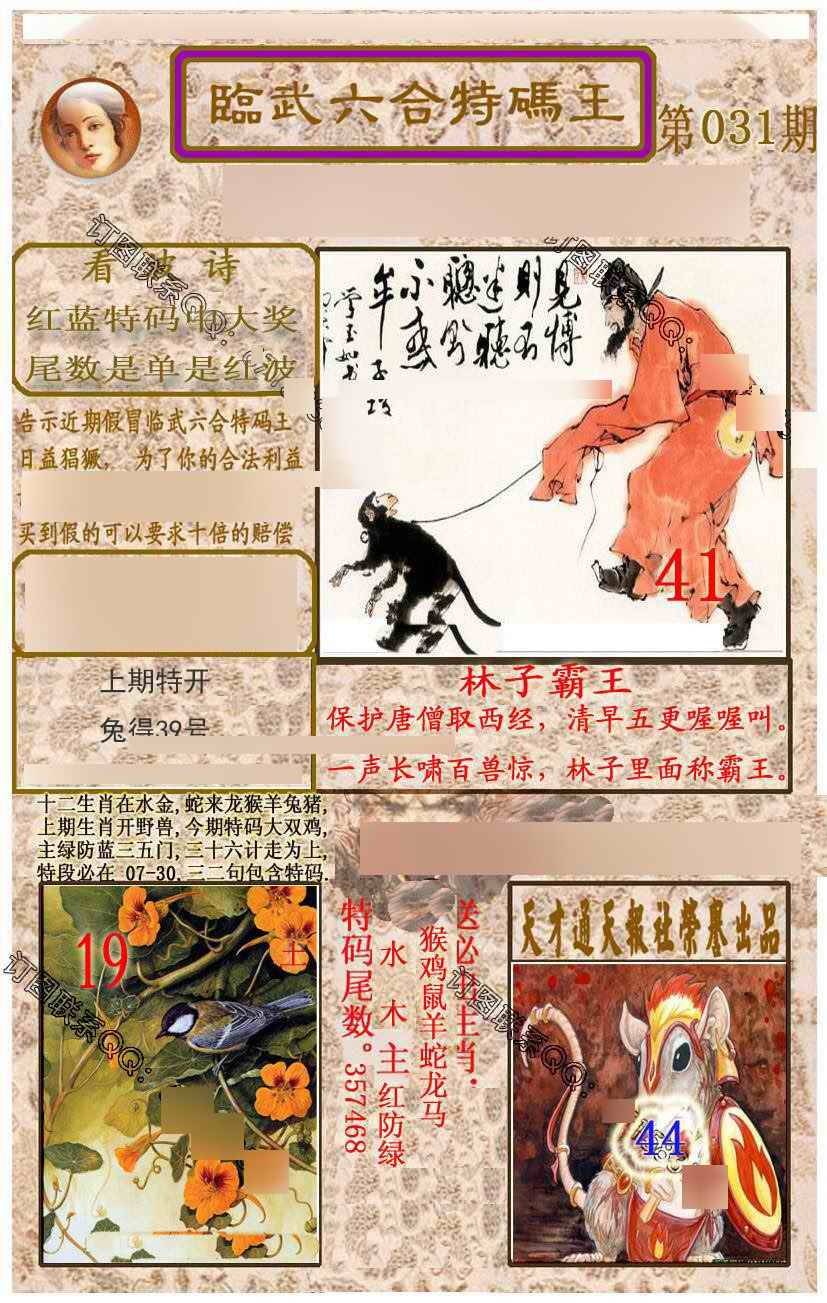 臨武六合特碼王
第031期
看波诗
红蓝特码中大奖
尾数是单是红波
告示近期假冒临武六合特码王
日益猖獗，为了你的合法利益
买到假的可以要求十倍的赔偿
见博
则不
迷听
聪
不惑
牟子
学玉如书
41
上期特开
兔得39号
林子霸王
保护唐僧取西经，清早五更喔喔叫。
一声长啸百兽惊，林子里面称霸王。
十二生肖在水金,蛇来龙猴羊兔猪,
上期生肖开野兽,今期特码大双鸡,
主绿防蓝三五门,三十六计走为上,
特段必在 07-30.三二句包含特码.
19
土
特码尾数。357468
水木主红防绿
猴鸡鼠羊蛇龙马
主当：
天才通天报社荣誉出品
44
订图联系QQ:
订图联系QQ:
订图联系QQ: